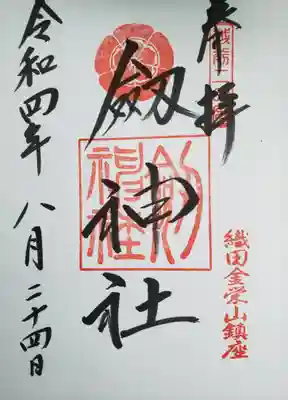 奉拝
越前二の宮
劔神社
劔神社
織田金栄山鎮座
令和四年八月二十四日